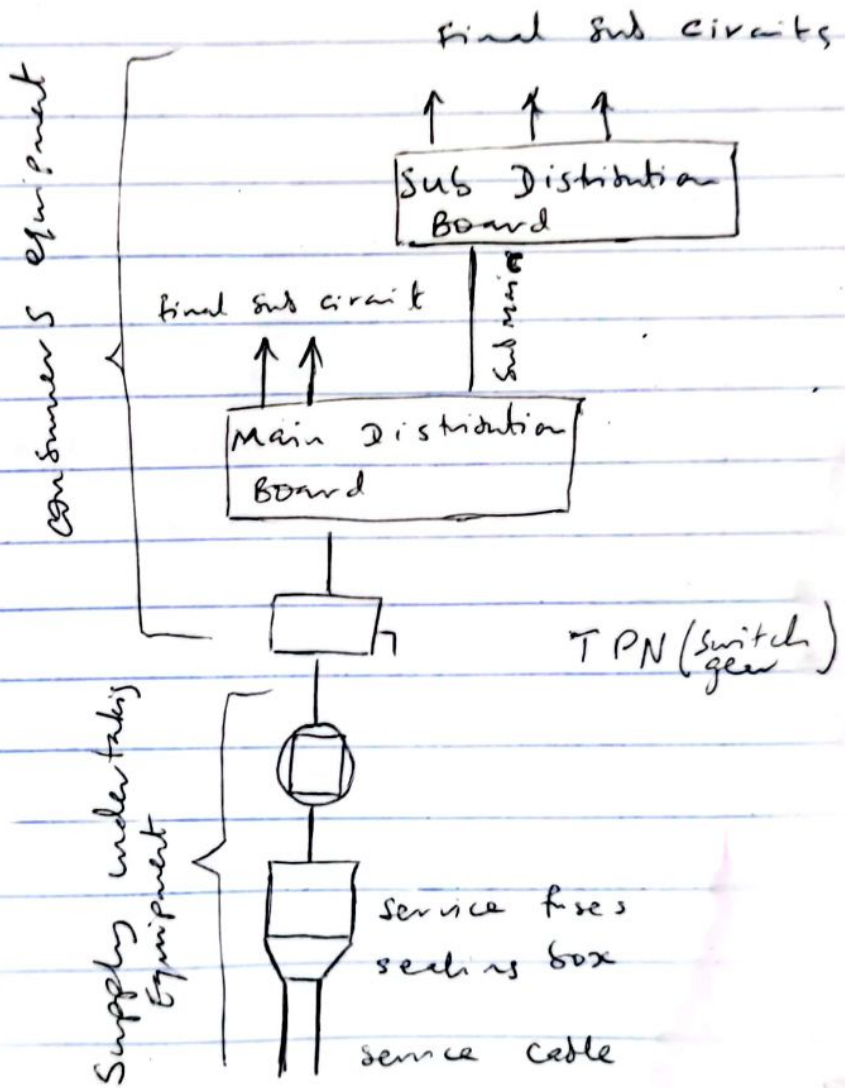 Final Sub circuits
consumers equipment
Sub Distribution
Board
Final sub circuit
Sub Main
Main Distribution
Board
TPN (switch
gear)
Supply undertaking
Equipment
service fuses
sealing box
service cable